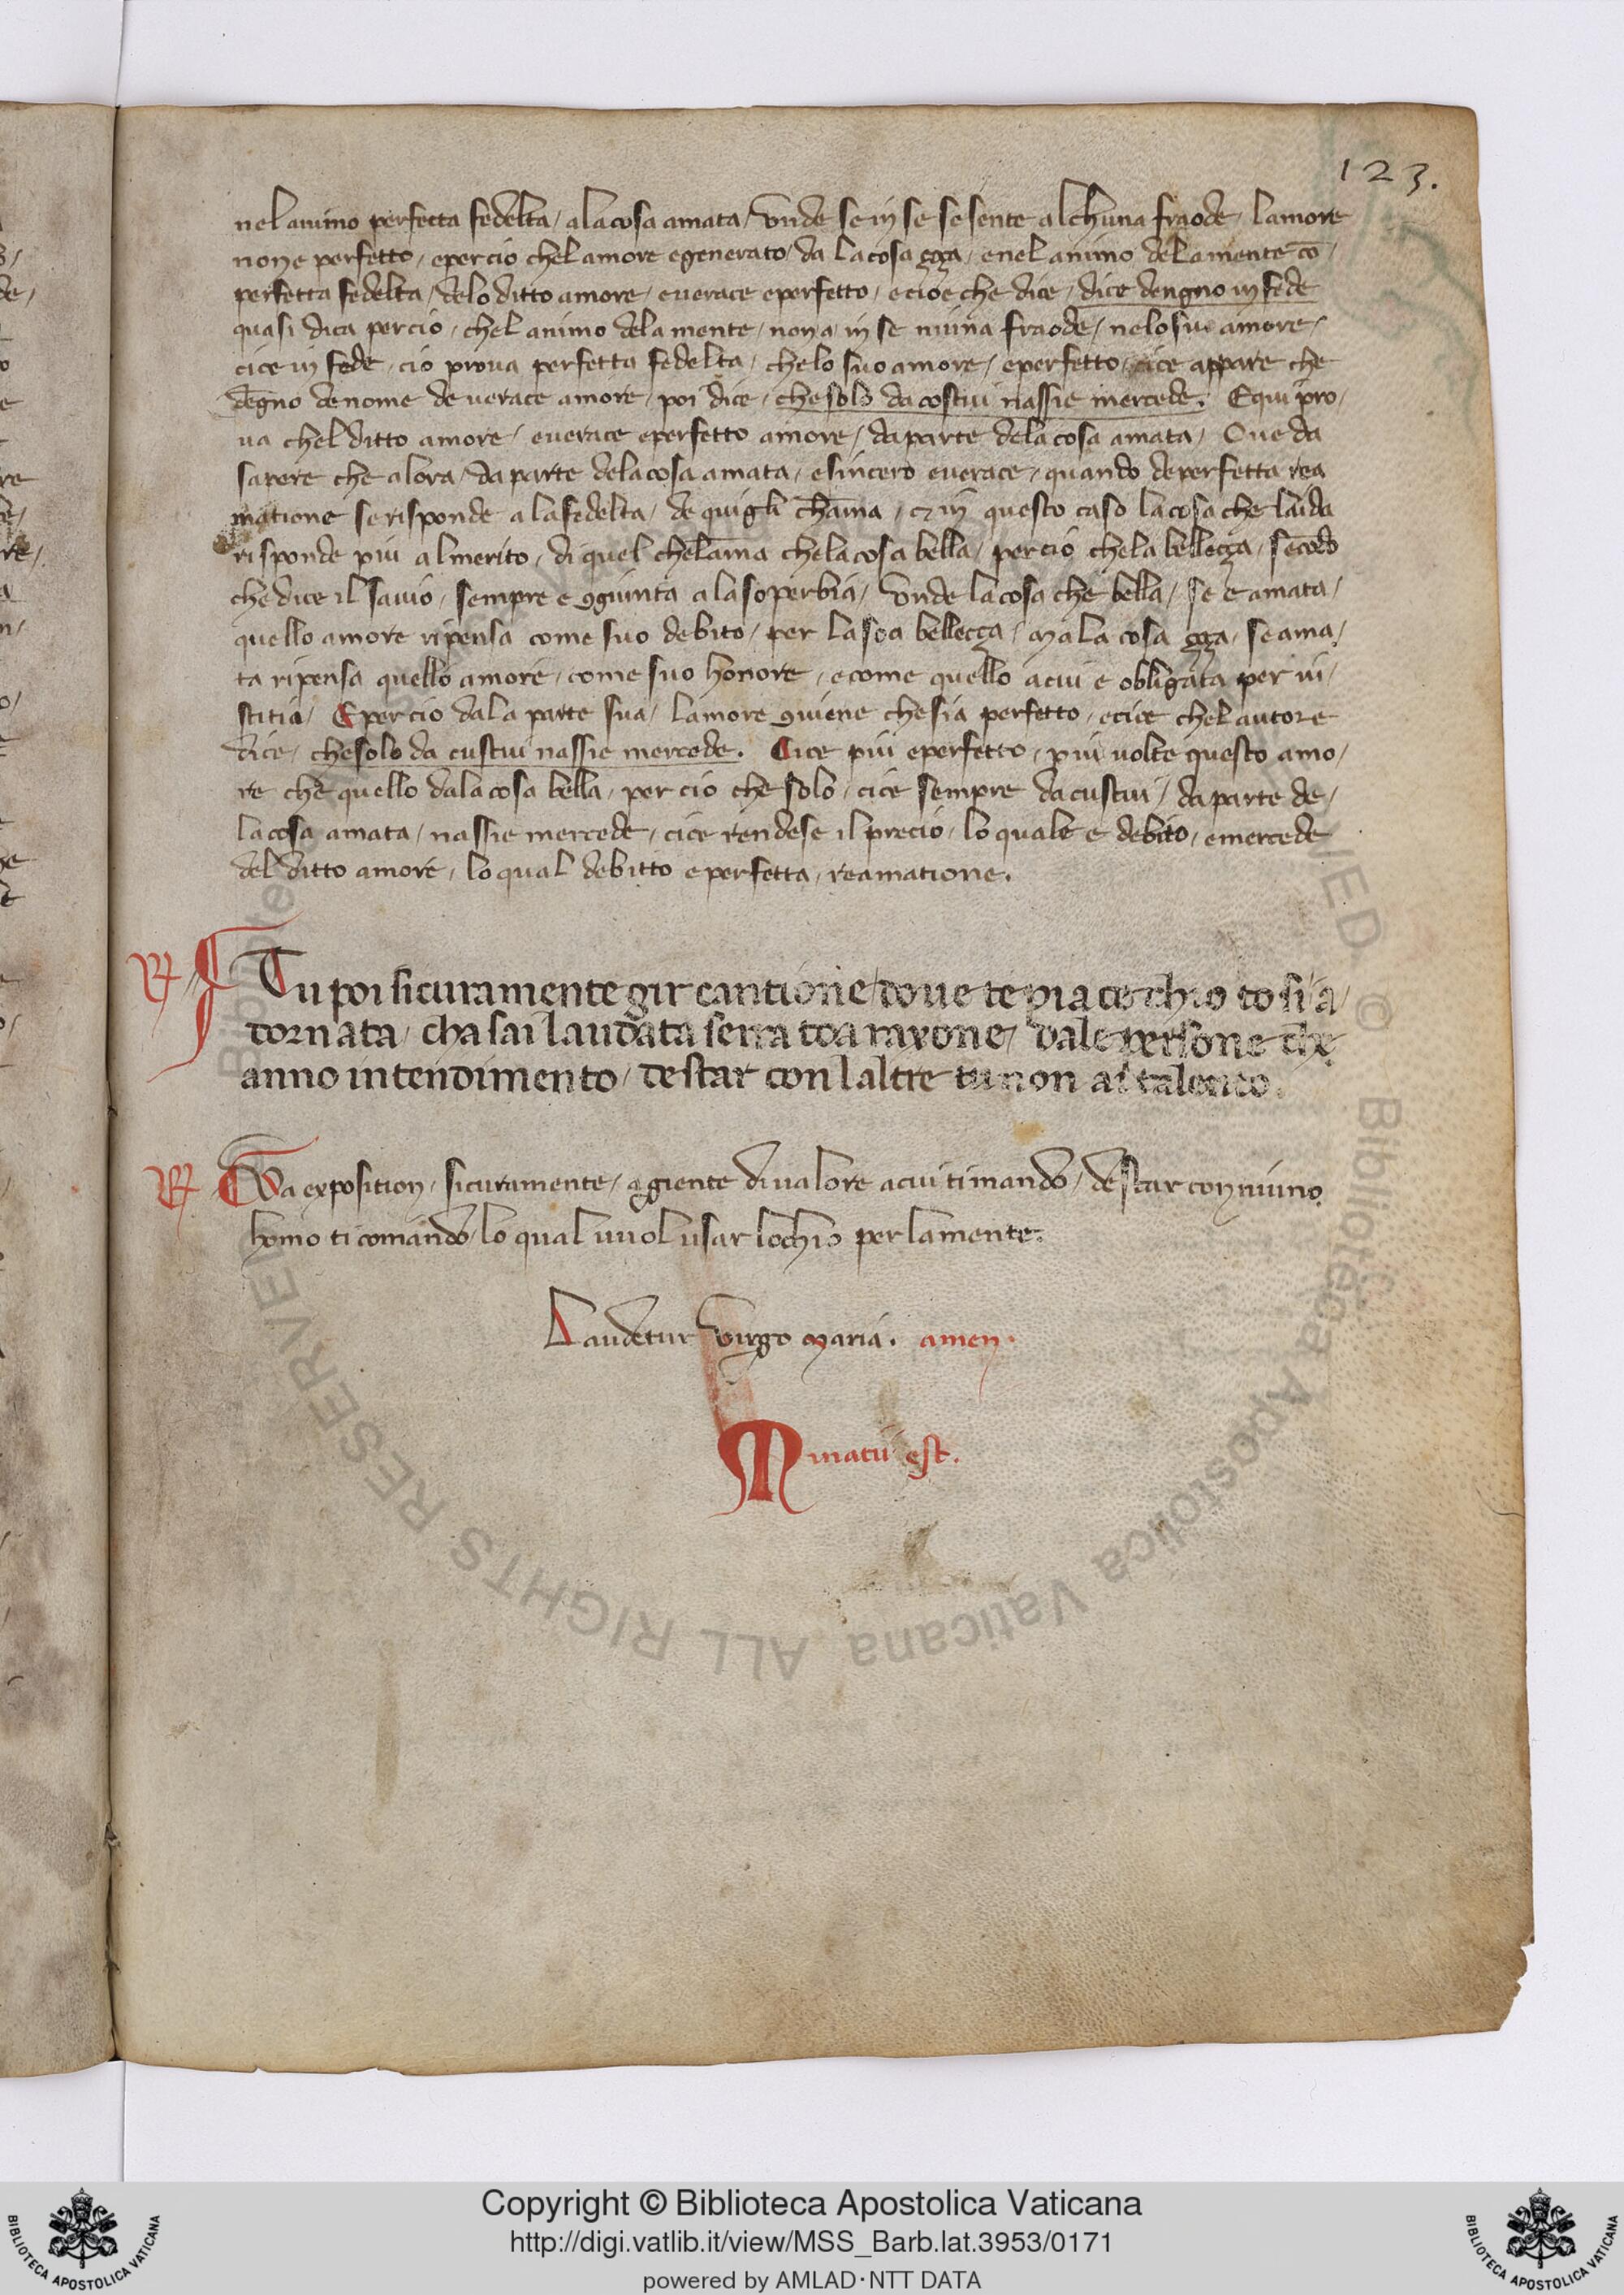 123.
nel animo perfecta fedelta / ala cosa amata / Unde se in se se sente alchuna fraode / lamore
none perfetto / epercio chel amore egenerato / da la cosa çoça / enel animo dela mente co /
perfetta fedelta / delo ditto amore / everace eperfetto / ecioe che dice / dice dengno in fede
quasi dica percio / chel animo dela mente / nona in se niuna fraode / nelo suo amore /
cioe in fede / cio prova perfetta fedelta / chelo suo amore / eperfetto / cioe appare che
degno de nome de verace amore / poi dice / che solo da costui nassie mercede. Equi pro /
va chel ditto amore / everace eperfetto amore / da parte dela cosa amata / Ove da
sapere che alora / da parte dela cosa amata / esincero everace / quando deperfetta rea
matione serisponde ala fedelta / de quigli chama / et in questo caso la cosa che laida
risponde piu al merito / di quel chelama chela cosa bella / percio chela bellecça / secodo
che dice il savio / sempre e 9giunta ala soperbia / Unde la cosa che bella / se e amata /
quello amore ripensa come suo debito / per la soa bellecça / Ma la cosa soça / se ama /
ta ripensa quello amore / come suo honore / ecome quello acui e obligata per iu /
stitia / Epercio dala parte sua / lamore 9viene che sia perfetto / ecioe chel autore
dice / che solo da custui nassie mercede. Cioe piu eperfetto / piu volte questo amo /
re che quello dala cosa bella / per cio che solo / cioe sempre da custui / da parte de /
la cosa amata / nassie mercede / cioe rendese il precio / lo quale e debito / emercede
del ditto amore / lo qual debitto eperfetta / reamatione.
Tu poi sicuramente gir cantione / dove te piace chio to si a /
dornata / cha sai laudata serra toa raxone / dale persone che
anno intendimento / destar con laltre tu non ai talento.
Va exposition / sicuramente / a giente di valore acui ti mando / de star con niuno
homo ti comando lo qual vuol usar lochio per la mente.
Laudetur Virgo Maria. amen.
BIBLIOTECA APOSTOLICA VATICANA
Copyright © Biblioteca Apostolica Vaticana
http://digi.vatlib.it/view/MSS_Barb.lat.3953/0171
powered by AMLAD·NTT DATA
BIBLIOTECA APOSTOLICA VATICANA
© Biblioteca Apostolica Vaticana ALL RIGHTS RESERVED